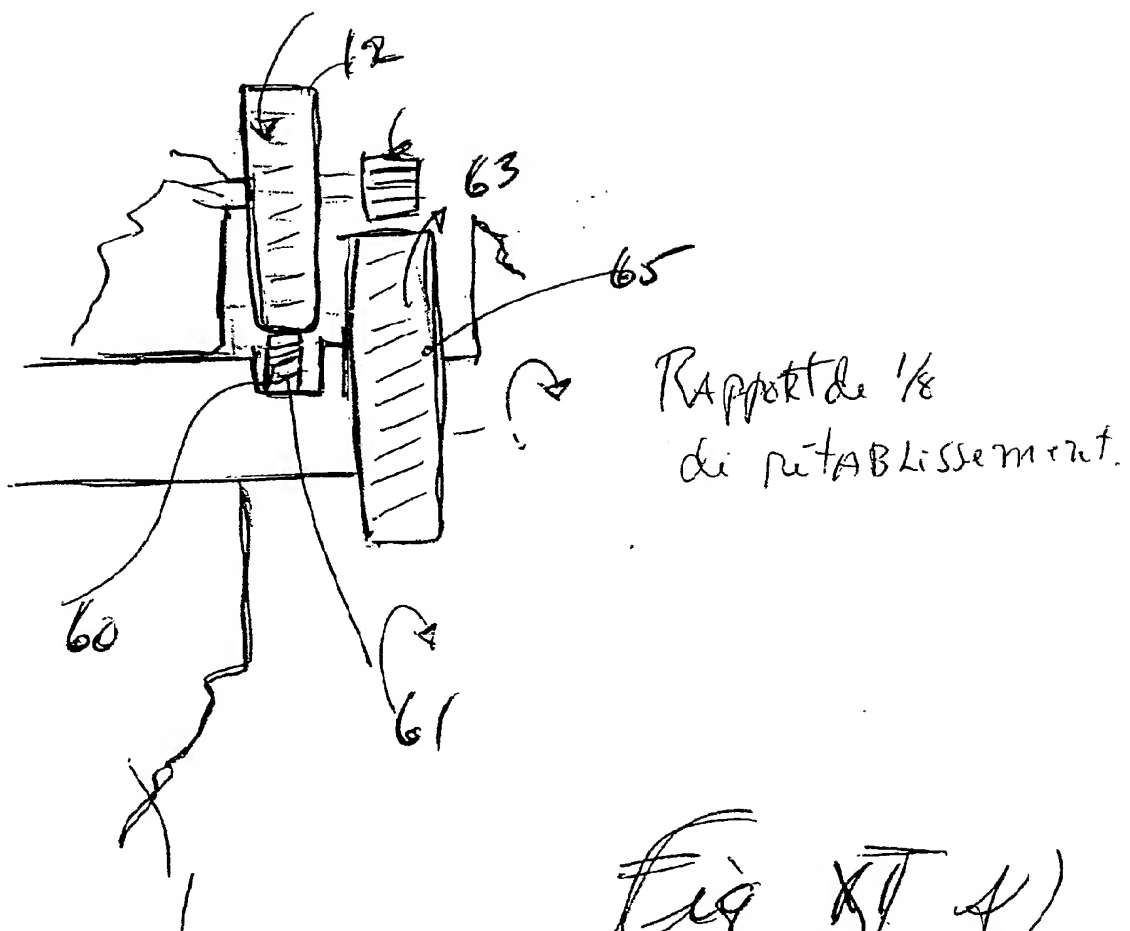 12
63
65
Rapport de 1/8
de rétablissement.
60
61
1
Fig